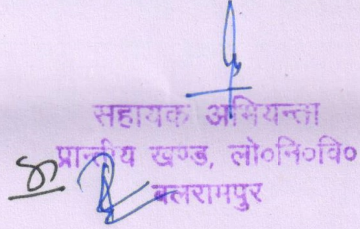 सहायक अभियन्ता
प्रान्तीय खण्ड, लो०नि०वि०
बलरामपुर